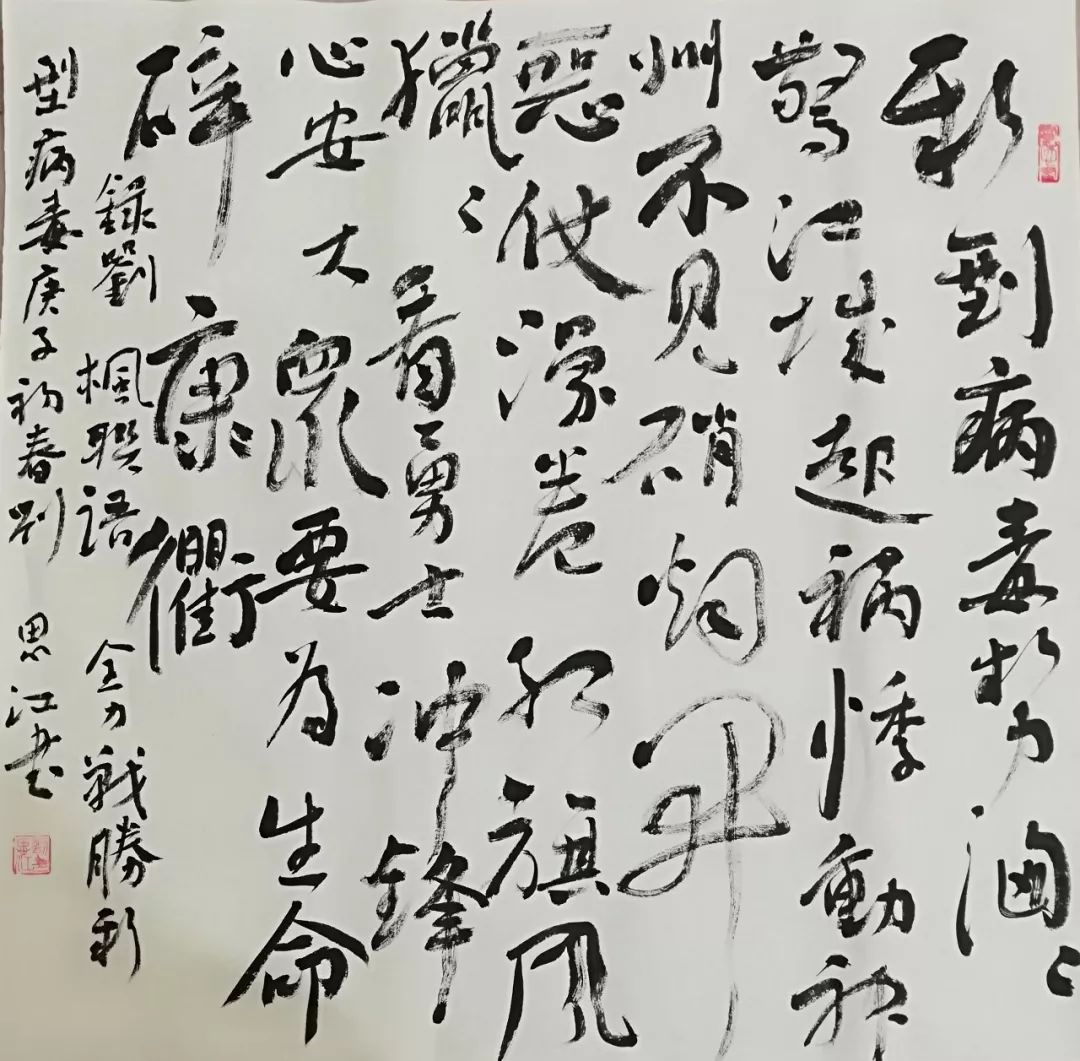 新型病毒势汹汹
惊江城起祸悸动神
州不见硝烟
恶仗漫卷红旗风
猎猎看勇士冲锋
心安大众要为生命
碎康衢
录刘枫联语全力战胜新
型病毒庚子初春刘思江书